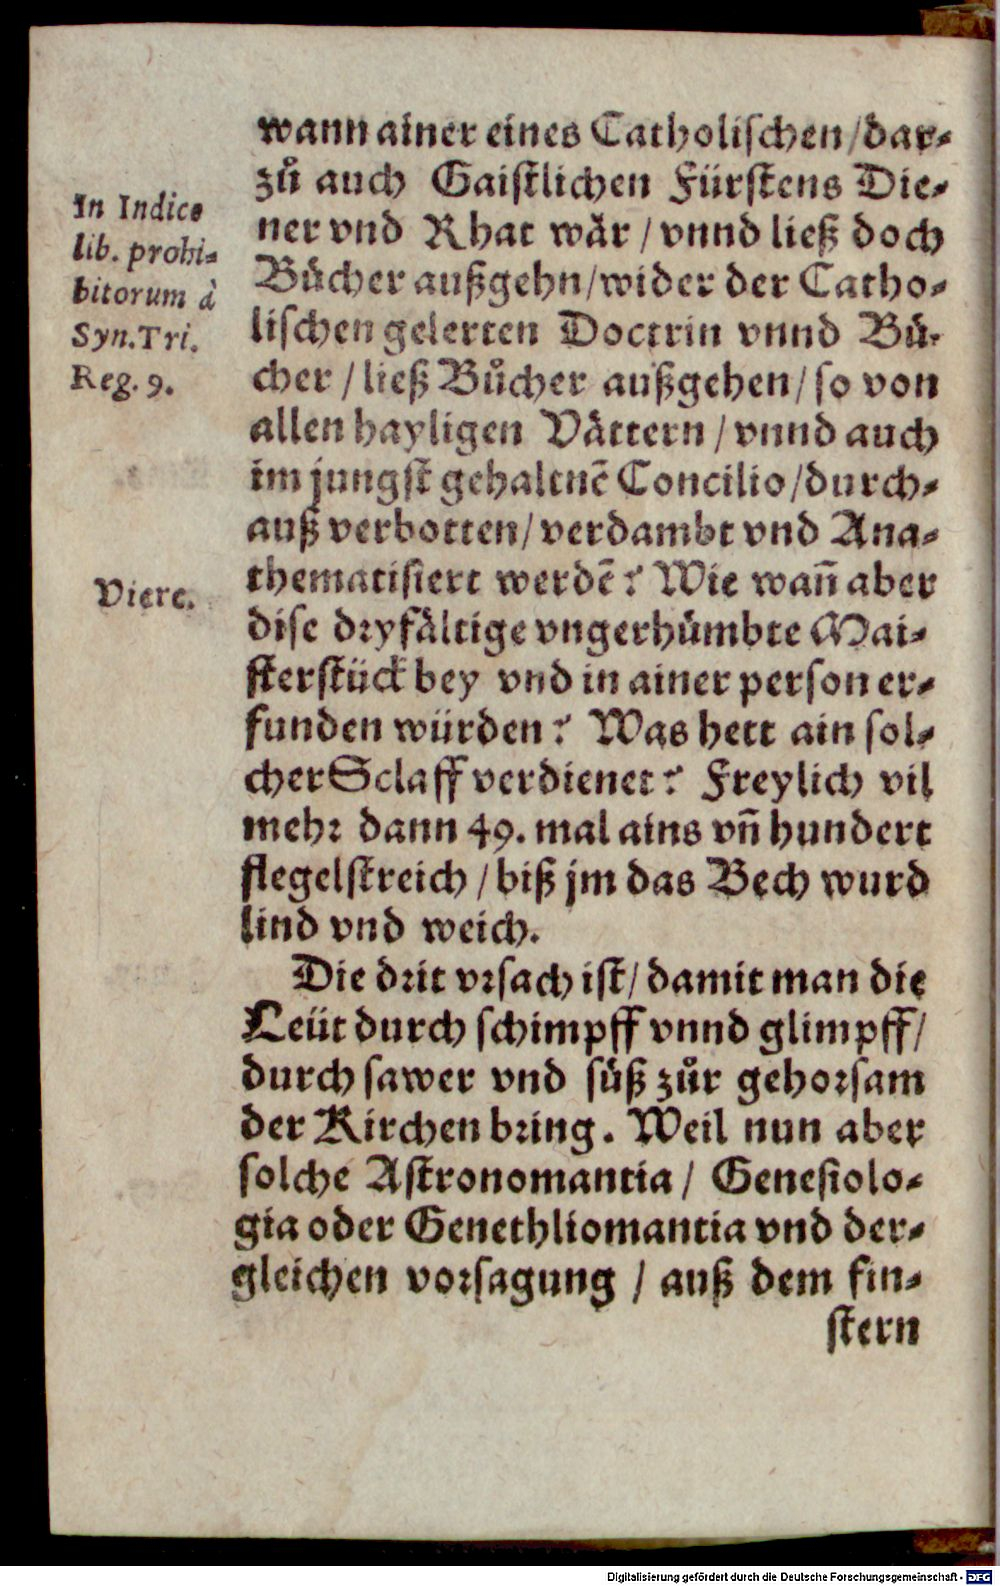 wann ainer eines Catholischen/dar-
zů auch Gaistlichen Fürstens Die-
ner vnd Rhat wår / vnnd ließ doch
Bůcher außgehn/wider der Catho-
lischen gelerten Doctrin vnnd Bů-
cher / ließ Bůcher außgehen/ so von
allen hayligen Våttern / vnnd auch
im jungst gehaltnē Concilio/durch-
auß verbotten/ verdambt vnd Ana-
thematisiert werdē? Wie wañ aber
dise dryfåltige vngerhůmbte Mai-
sterstück bey vnd in ainer person er-
funden würden? Was hett ain sol-
cher Sclaff verdienet? Freylich vil
mehr dann 49. mal ains vñ hundert
flegelstreich / biß jm das Bech wurd
lind vnd weich.
Die drit vrsach ist/ damit man die
Leüt durch schimpff vnnd glimpff/
durch sawer vnd süß zůr gehorsam
der Kirchen bring. Weil nun aber
solche Astronomantia / Genesiolo-
gia oder Genethliomantia vnd der-
gleichen vorsagung / auß dem fin-
stern
In Indice
lib. prohi-
bitorum à
Syn. Tri.
Reg. 9.
Viert.
Digitalisierung gefördert durch die Deutsche Forschungsgemeinschaft - DFG